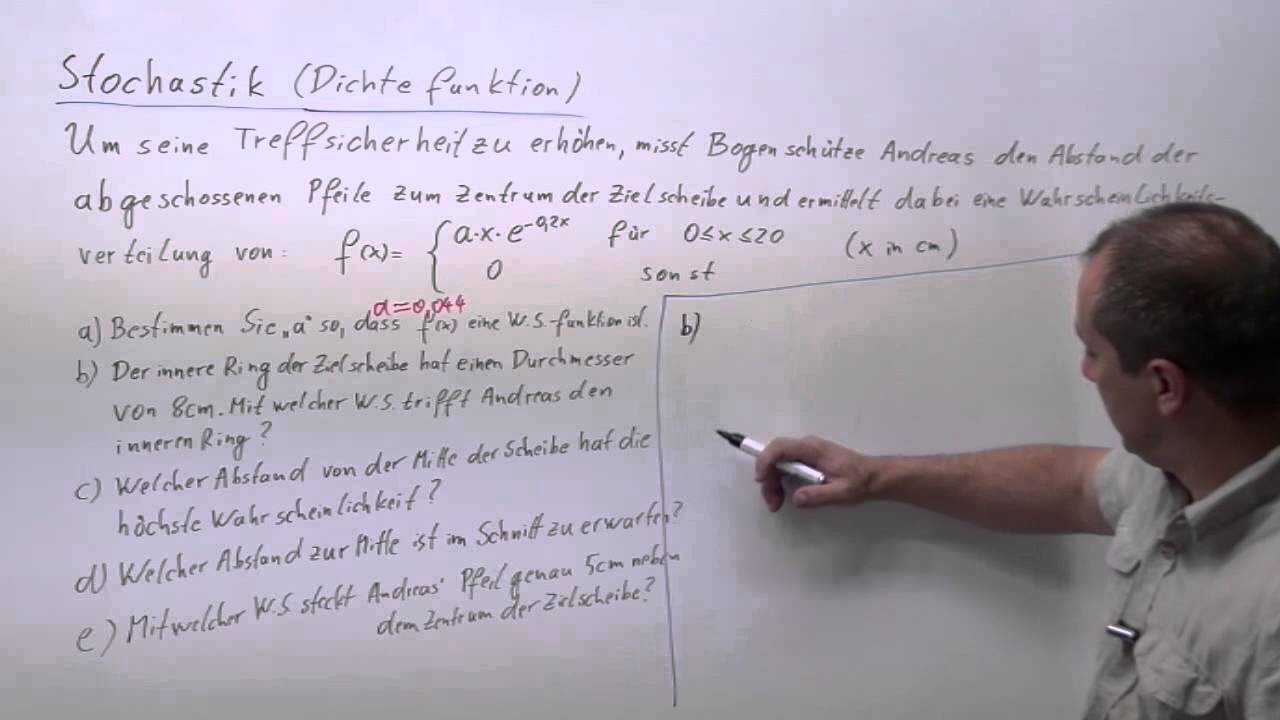 Stochastik (Dichtefunktion)
Um seine Treffsicherheit zu erhöhen, misst Bogenschütze Andreas den Abstand der
abgeschossenen Pfeile zum Zentrum der Zielscheibe und ermittelt dabei eine Wahrscheinlichkeits-
verteilung von: f(x)= { a·x·e^-0,2x für 0≤x≤20 (x in cm)
0 sonst
a=0,044
a) Bestimmen Sie „a" so, dass f(x) eine W.S.-funktion ist.
b) Der innere Ring der Zielscheibe hat einen Durchmesser
von 8cm. Mit welcher W.S. trifft Andreas den
inneren Ring?
c) Welcher Abstand von der Mitte der Scheibe hat die
höchste Wahrscheinlichkeit?
d) Welcher Abstand zur Mitte ist im Schnitt zu erwarten?
e) Mit welcher W.S steckt Andreas' Pfeil genau 5cm neben
dem Zentrum der Zielscheibe?
b)